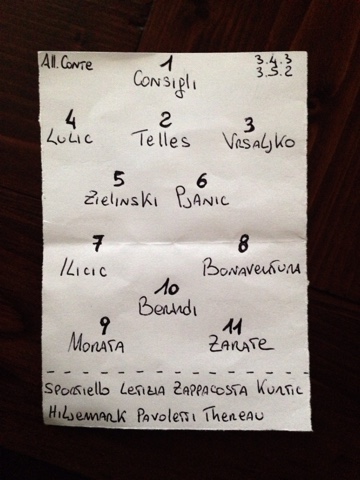 All. CONTE 1 3.4.3
CONSIGLI 3.5.2
4 2 3
LULIC TELLES VRSALJKO
5 6
ZIELINSKI PJANIC
7 8
ILICIC BONAVENTURA
10
BERARDI
9 11
MORATA ZARATE
SPORTIELLO LETIZIA ZAPPACOSTA KURTIC
HILJEMARK PAVOLETTI THEREAU